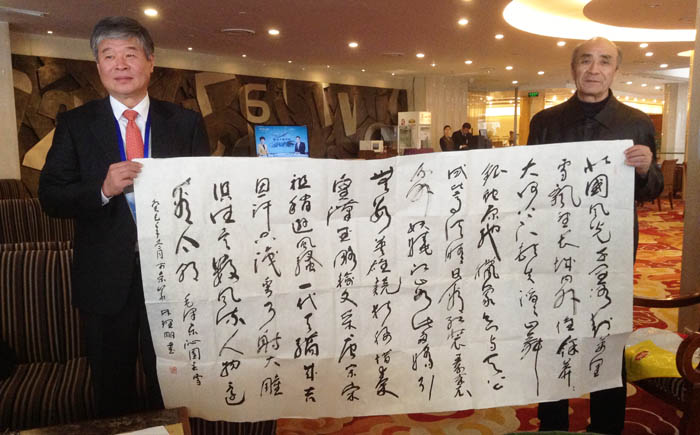 北國風光千里冰封萬里
雪飄望長城内外惟餘莽〻
大河上下頓失滔〻山舞
銀蛇原馳蠟象欲与天公
試比高須晴日看紅裝素裹
分外妖嬈江山如此多嬌引
無數英雄競折腰惜秦
皇漢武略輸文采唐宗宋
祖稍遜風騷一代天驕成吉
思汗只識彎弓射大雕
俱往矣數風流人物還
看今朝
毛澤東沁園春雪
癸巳年